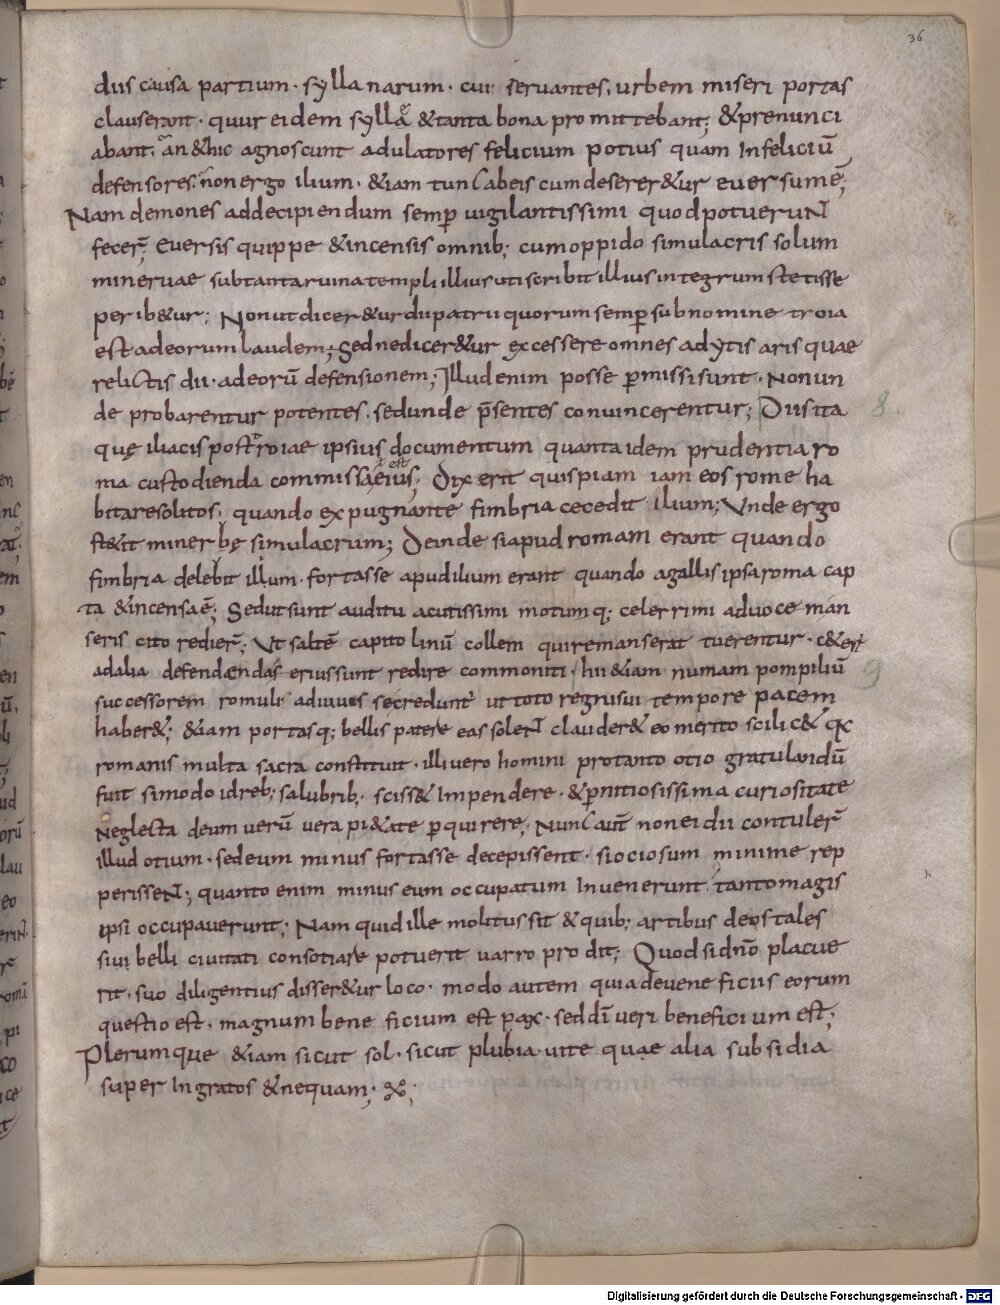 36
diis causa partium · syllanarum · cui servantes, urbem miseri portas
clauserant · quur eidem syllę & tanta bona promittebant; & prenunci
abant, an & hic agnoscunt adulatores felicium potius quam Infeliciū
defensores, non ergo ilium · &iam tunc abeis cum deserer&ur euersum ē;
Nam demones addecipiendum semp̄ vigilantissimi quod potveruN
fecer̄; Euersis quippe & incensis omnib; cum oppido simulacris solum
minervae subtantaruina templi illius uti scribit illius integrum stetisse
perib&ur; Non ut dicer&ur dii patrii quorum semp̄ sub nomine troia
est ad eorum laudem; Sed ne dicer&ur excessere omnes adytis aris quae
relictis dii · ad eorū defensionem; Illud enim posse p̄missi sunt · Non un
de probarentur potentes, sed unde p̄sentes convincerentur; Diis ita 8
quę iliacis post troiae ipsius documentum quanta idem prudentia ro
est
ma custodienda commissa eius; Dixerit quispiam iam eos rome ha
bitare solitos, quando expugnante fimbria cecedit ilium; Vnde ergo
st&it minerbę simulacrum; Deinde si apud romam erant quando
fimbria delebit illum · fortasse apud ilium erant quando a gallis ipsa roma cap
ta & incensa ē; Sed ut sunt auditu acutissimi motumq; celerrimi ad uocem an
seris cito redier̄; Vt saltē capitolinū collem qui remanserat tuerentur · c&er
ad alia defendaendas erius sunt redire commoniti · hii &iam numam pompiliū 9
successorem romuli adiuuis secredunt ut toto regni sui tempore pacem
haber&; &iam portasq; bellis patere eas soleN clauder& eo merito scilic& qx
romanis multa sacra constituit · illi vero homini pro tanto otio gratulandū
fuit si modo id reb; salubrib; sciss& Impendere · & p̄nitiosissima curiositate
Neglecta deum verū vera pi&ate p̄quirere, Nunc aut̄ non ei dii contuler̄
illud otium · sed eum minus fortasse decepissent · si ociosum minime rep
perisseN; quanto enim minus eum occupatum Invenerunt, tanto magis
ipsi occupaverunt; Nam quid ille molitus sit & quib; artibus deos tales
siui belli ciuitati consotiare potverit varro prodit; Quod si dn̄o placue
rit, suo diligentius disser&ur loco · modo autem quia de veneficiis eorum
questio est · magnum beneficium est pax · sed dī veri beneficium est;
Plerumque &iam sicut sol · sicut plubia uite quae alia subsidia
super Ingratos & nequam;
Digitalisierung gefördert durch die Deutsche Forschungsgemeinschaft - DFG